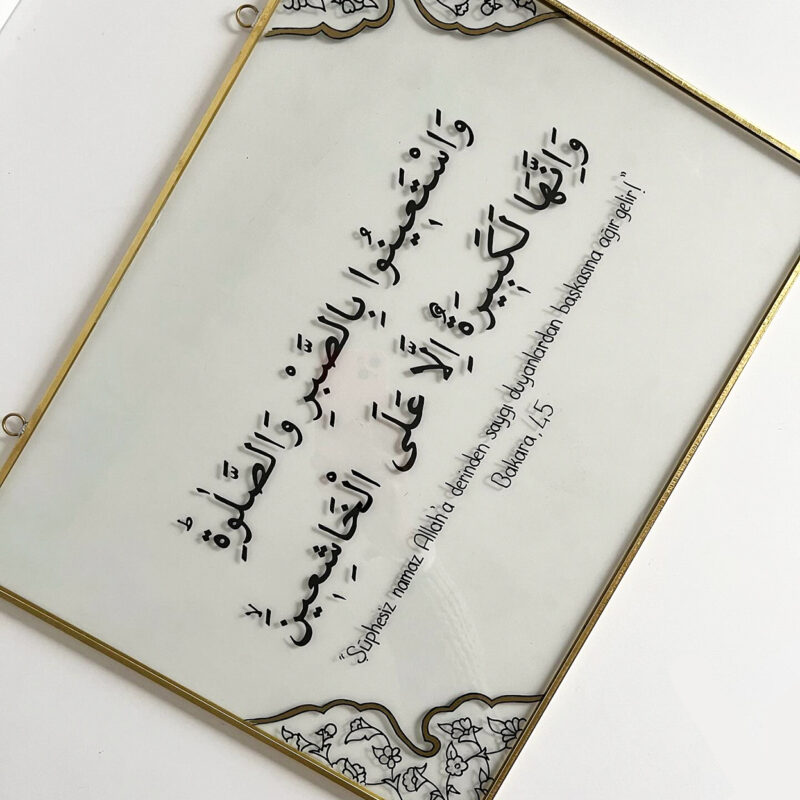 وَاسْتَعِينُوا بِالصَّبْرِ وَالصَّلٰوةِۜ
وَاِنَّهَا لَكَبِيرَةٌ اِلَّا عَلَى الْخَاشِعِينَۙ
"Şüphesiz namaz Allah'a derinden saygı duyanlardan başkasına ağır gelir!"
Bakara, 45